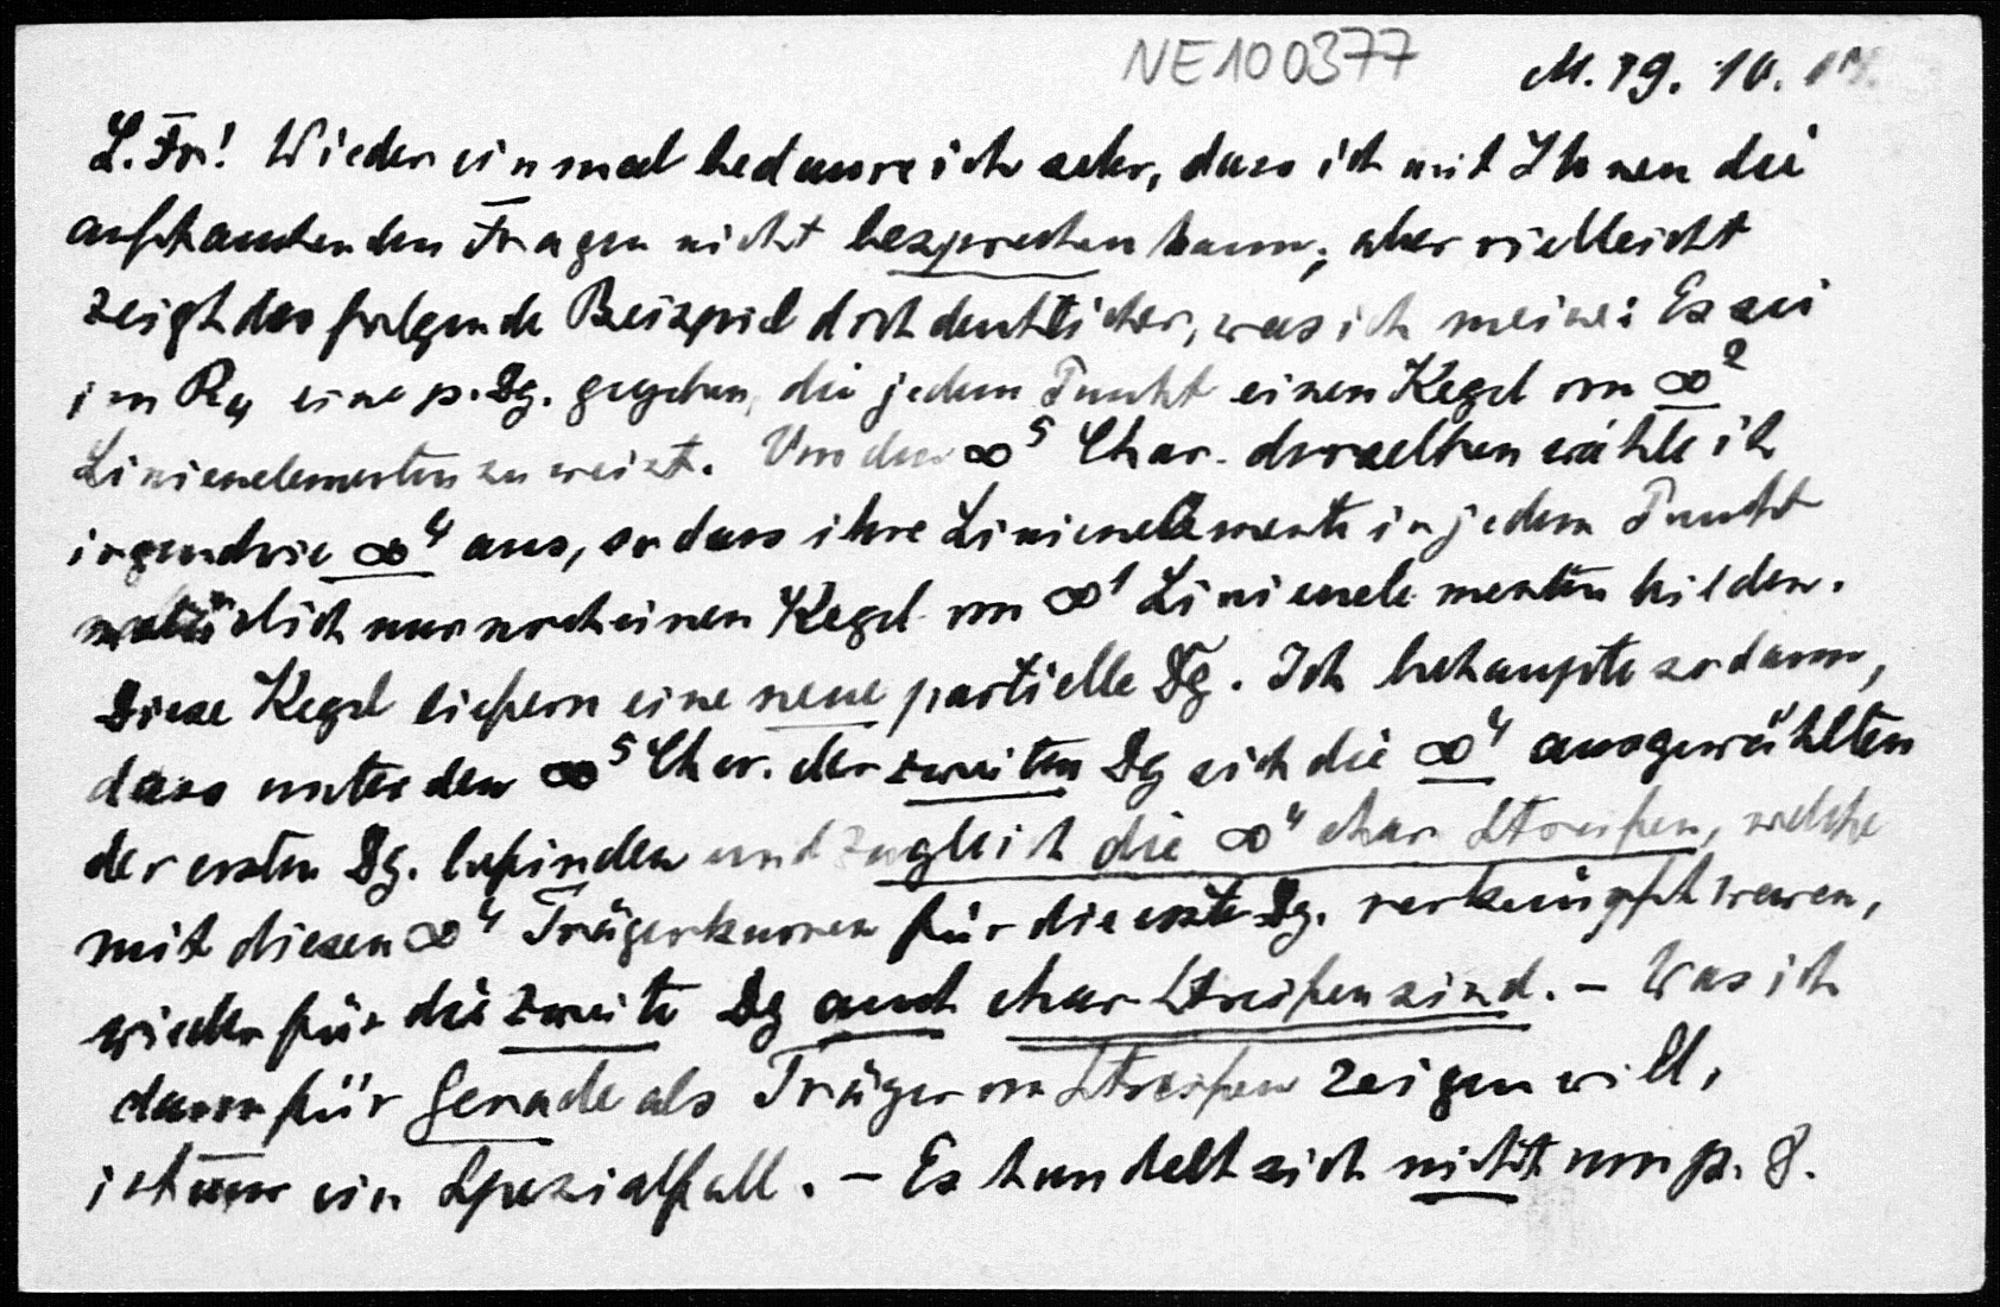 NE100377 M. 19. 10.
L. Fr! Wieder einmal bedaure ich sehr, dass ich mit Ihnen die
auftauchenden Fragen nicht besprechen kann; aber vielleicht
zeigt das folgende Beispiel doch deutlicher, was ich meine: Es sei
im R₄ eine p. Dg. gegeben, die jedem Punkt einen Kegel von ∞²
Linienelementen zuweist. Von den ∞⁵ Char. derselben wähle ich
irgendwie ∞⁴ aus, so dass ihre Linienelemente in jedem Punkt
natürlich nur noch einen Kegel von ∞¹ Linienelementen bilden.
Diese Kegel liefern eine neue partielle Dg. Ich behaupte sodann,
dass unter den ∞⁵ Char. der zweiten Dg sich die ∞⁴ ausgewählten
der ersten Dg. befinden und zugleich die ∞⁴ char Streifen, welche
mit diesen ∞⁴ Trägerkurven für die erste Dg. verknüpft waren,
wieder für die zweite Dg auch char Streifen sind. – Was ich
dann für Gerade als Träger von Streifen zeigen will,
ist nur ein Spezialfall. – Es handelt sich nicht um p.